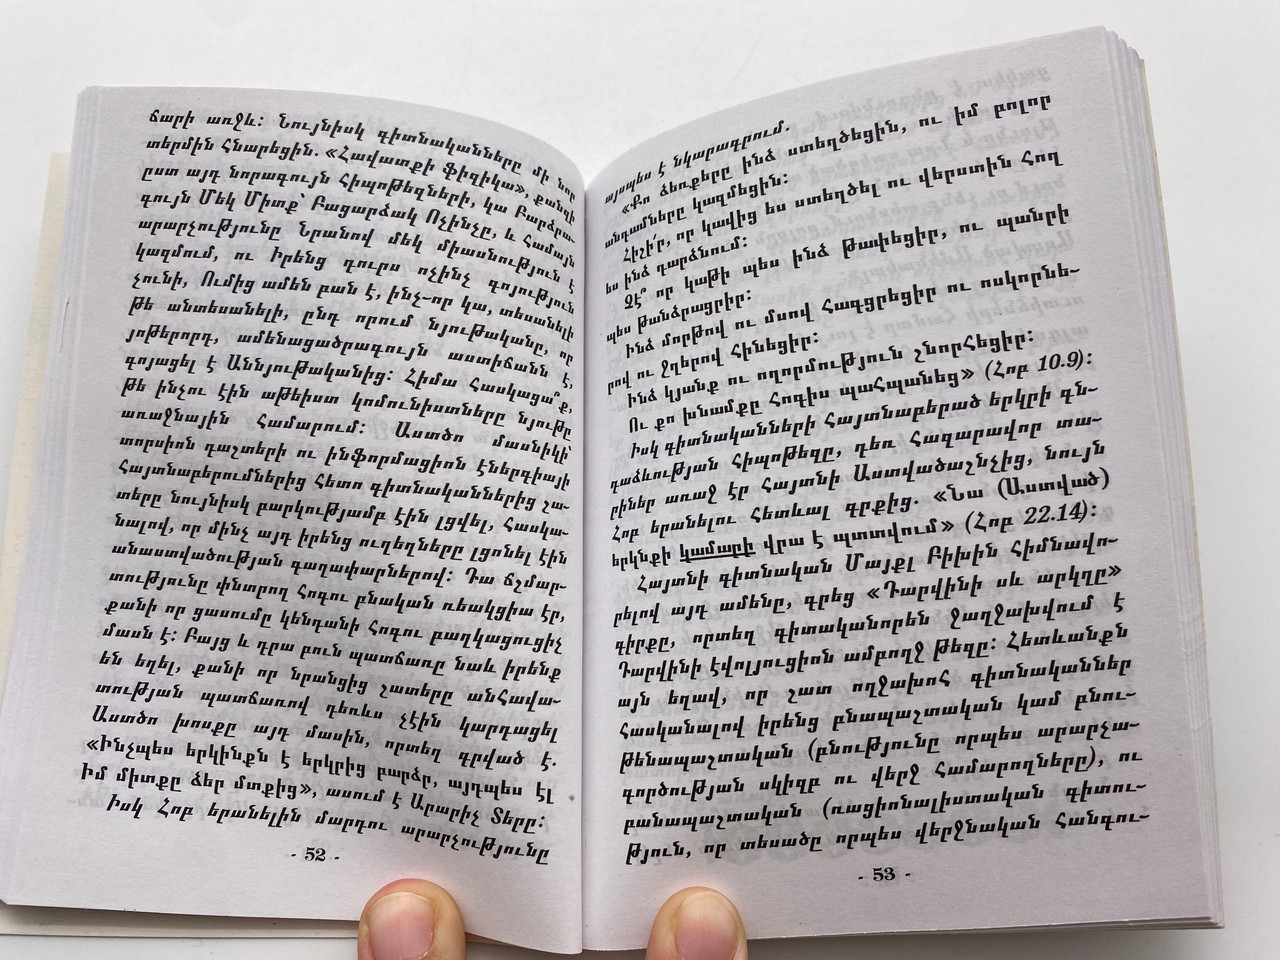 ճարի առջև։ Նույնիսկ գիտնականները մի նոր
տերմին հնարեցին. «Հավատքի ֆիզիկա», քանզի
ըստ այդ նորագույն հիպոթեզների, կա Բարձրա-
գույն Մեկ Միտք՝ Բացարձակ Ոչինչը, և համայն
արարչությունը նրանով մեկ միասնություն է
կազմում, ու իրենց դուրս ոչինչ գոյություն
չունի, Ումից ամեն բան է, ինչ-որ կա, տեսանելի
թե անտեսանելի, ընդ որում նյութականը, որ
յոթերորդ, ամենացածրագույն աստիճանն է,
գոյացել է Աննյութականից։ Հիմա հասկացա՞ք,
թե ինչու էին աթեիստ կոմունիստները նյութը
առաջնային համարում։ Աստծո մասնիկի՝
տորսիոն դաշտերի ու ինֆորմացիոն էներգիայի
հայտնաբերումներից հետո գիտնականներից շա-
տերը նույնիսկ բարկությամբ էին լցվել, հասկա-
նալով, որ մինչ այդ իրենց ուղեղները լցոնել էին
անաստվածության գաղափարներով։ Դա ճշմար-
տությունը փնտրող հոգու բնական ռեակցիա էր,
քանի որ ցասումը կենդանի հոգու բաղկացուցիչ
մասն է։ Բայց և դրա բուն պատճառը նաև իրենք
են եղել, քանի որ նրանցից շատերը անհավա-
տության պատճառով դեռևս չէին կարդացել
Աստծո խոսքը այդ մասին, որտեղ գրված է.
«Ինչպես երկինքն է երկրից բարձր, այդպես էլ
Իմ միտքը ձեր մտքից», ասում է Արարիչ Տերը։
Իսկ Հոբ երանելին մարդու արարչությունը
- 52 -
այսպես է նկարագրում.
«Քո ձեռքերը ինձ ստեղծեցին, ու իմ բոլոր
անդամները կազմեցին։
Հիշի՛ր, որ կավից ես ստեղծել ու վերստին հող
ես ինձ դարձնում։
Չէ՞ որ կաթի պես ինձ թափեցիր, ու պանրի
պես թանձրացրիր։
Ինձ մորթով ու մսով հագցրեցիր ու ոսկորնե-
րով ու ջղերով հինեցիր։
Ինձ կյանք ու ողորմություն շնորհեցիր։
Ու քո խնամքը հոգիս պահպանեց» (Հոբ 10.9)։
Իսկ գիտնականների հայտնաբերած երկրի գն-
դաձևության հիպոթեզը, դեռ հազարավոր տա-
րիներ առաջ էր հայտնի Աստվածաշնչից, նույն
Հոբ երանելու հետևալ գրքից. «Նա (Աստված)
երկնքի կամարի վրա է պտտվում» (Հոբ 22.14)։
Հայտնի գիտնական Մայքլ Բիխին հիմնավո-
րելով այդ ամենը, գրեց «Դարվինի սև արկղը»
գիրքը, որտեղ գիտականորեն ջաղջախվում է
Դարվինի էվոլյուցիոն ամբողջ թեզը։ Հետևանքն
այն եղավ, որ շատ ողջախոհ գիտնականներ
հասկանալով իրենց բնապաշտական կամ բնու-
թենապաշտական (բնությունը որպես արարչա-
գործության սկիզբ ու վերջ համարողները), ու
բանապաշտական (ռացիոնալիստական գիտու-
թյուն, որ տեսածը որպես վերջնական հանգու-
- 53 -